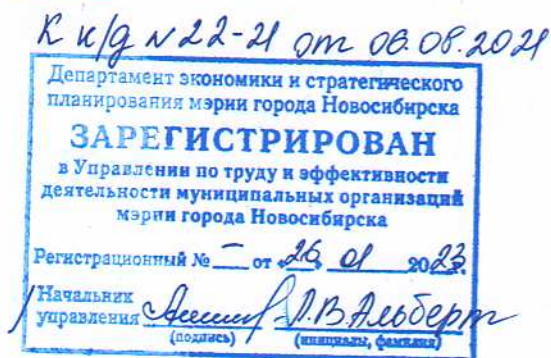 К к/д № 22-21 от 06.08.2021
Департамент экономики и стратегического
планирования мэрии города Новосибирска
ЗАРЕГИСТРИРОВАН
в Управлении по труду и эффективности
деятельности муниципальных организаций
мэрии города Новосибирска
Регистрационный № — от «26» 01 2023.
Начальник
управления Л.В.Альберт
(подпись) (инициалы, фамилия)